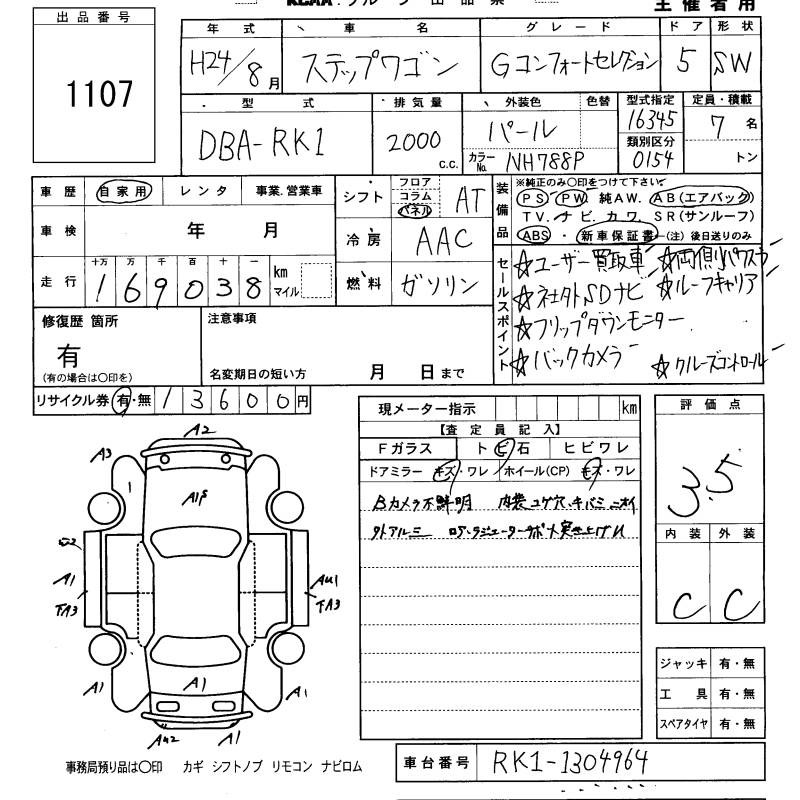 KCAA
出品番号
1107
年式 車名 グレード ドア 形状
H24/8月 ステップワゴン Gコンフォートセレクション 5 SW
型式 排気量 外装色 色替 型式指定 定員・積載
DBA-RK1 2000c.c. パール 16345 7名
カラーNo. NH788P 類別区分 0154 トン
車歴 自家用 レンタ 事業.営業車
車検 年 月
走行 十万 万 千 百 十 一
169038 km マイル
シフト フロア コラム パネル AT
冷房 AAC
燃料 ガソリン
装備品 ※純正のみ〇印をつけて下さい
PS PW 純AW. AB(エアバック)
TV. ナビ. カワ. SR(サンルーフ)
ABS ・ 新車保証書 (注)後日送りのみ
セールスポイント
☆ユーザー買取車 ☆両側パワスラ
☆社外SDナビ ☆ルーフキャリア
☆フリップダウンモニター
☆バックカメラ ☆クルーズコントロール
修復歴 箇所
有
(有の場合は〇印を)
注意事項
名変期日の短い方 月 日まで
リサイクル券 有・無 13600円
現メーター指示 km
【査定員記入】
Fガラス トビ石 ヒビワレ
ドアミラー キズ・ワレ ホイール(CP) キズ・ワレ
Bカメラ不鮮明 内装コゲ穴、キバミ ニオイ
外アルミ ロア・ラジエーターサポート突き上げU
評価点
3.5
内装 外装
C C
ジャッキ 有・無
工具 有・無
スペアタイヤ 有・無
A2
A3
1
A1
A1
TA3
AU1
TA3
A1
A1
A1
AU2
A1
事務局預り品は〇印 カギ シフトノブ リモコン ナビロム
車台番号 RK1-1304964